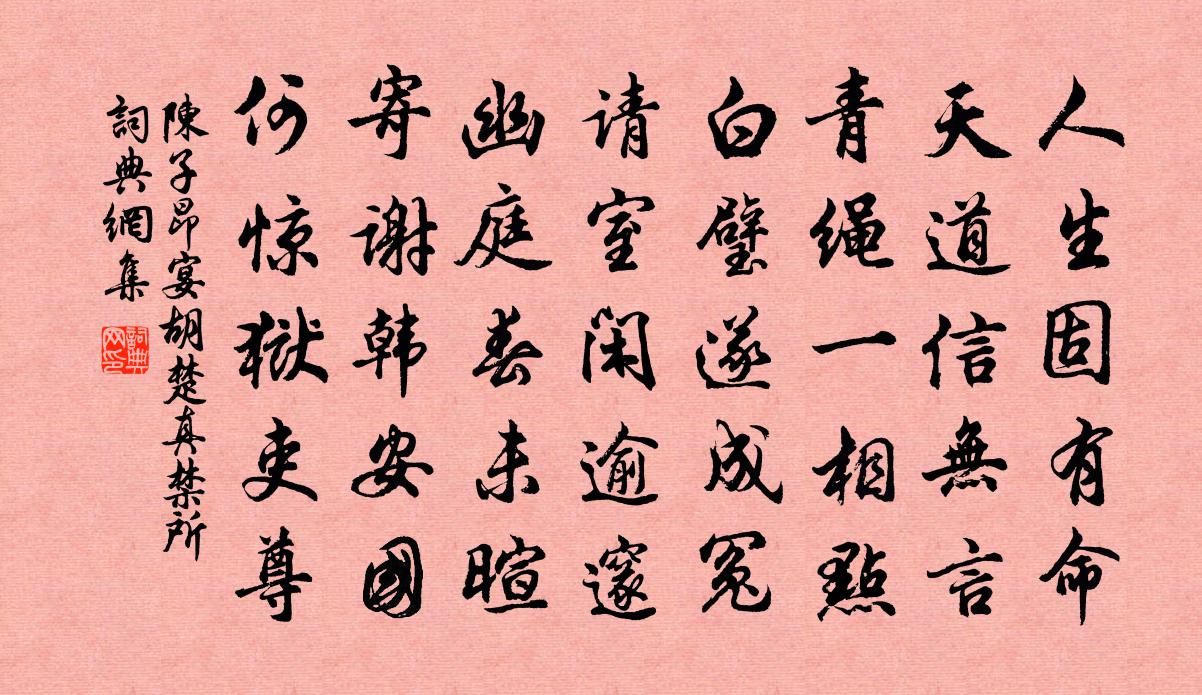 人生固有命
天道信無言
青绳一相點
白璧遂成冤
请室闲逾邃
幽庭春未暄
寄谢韩安國
何惊獄吏尊
陳子昂宴胡楚真禁所
詞典網集
詞典网印